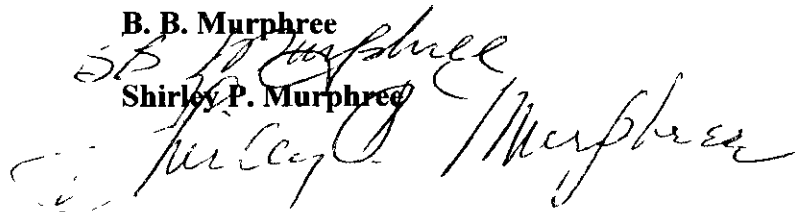 B. B. Murphree
B B Murphree
Shirley P. Murphree
Shirley P. Murphree